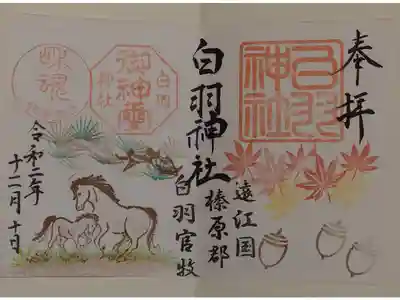 奉拝
白羽神社
遠江国
榛原郡
白羽神社
白羽官牧
白羽
神社
御神璽
令和二年
十二月十日